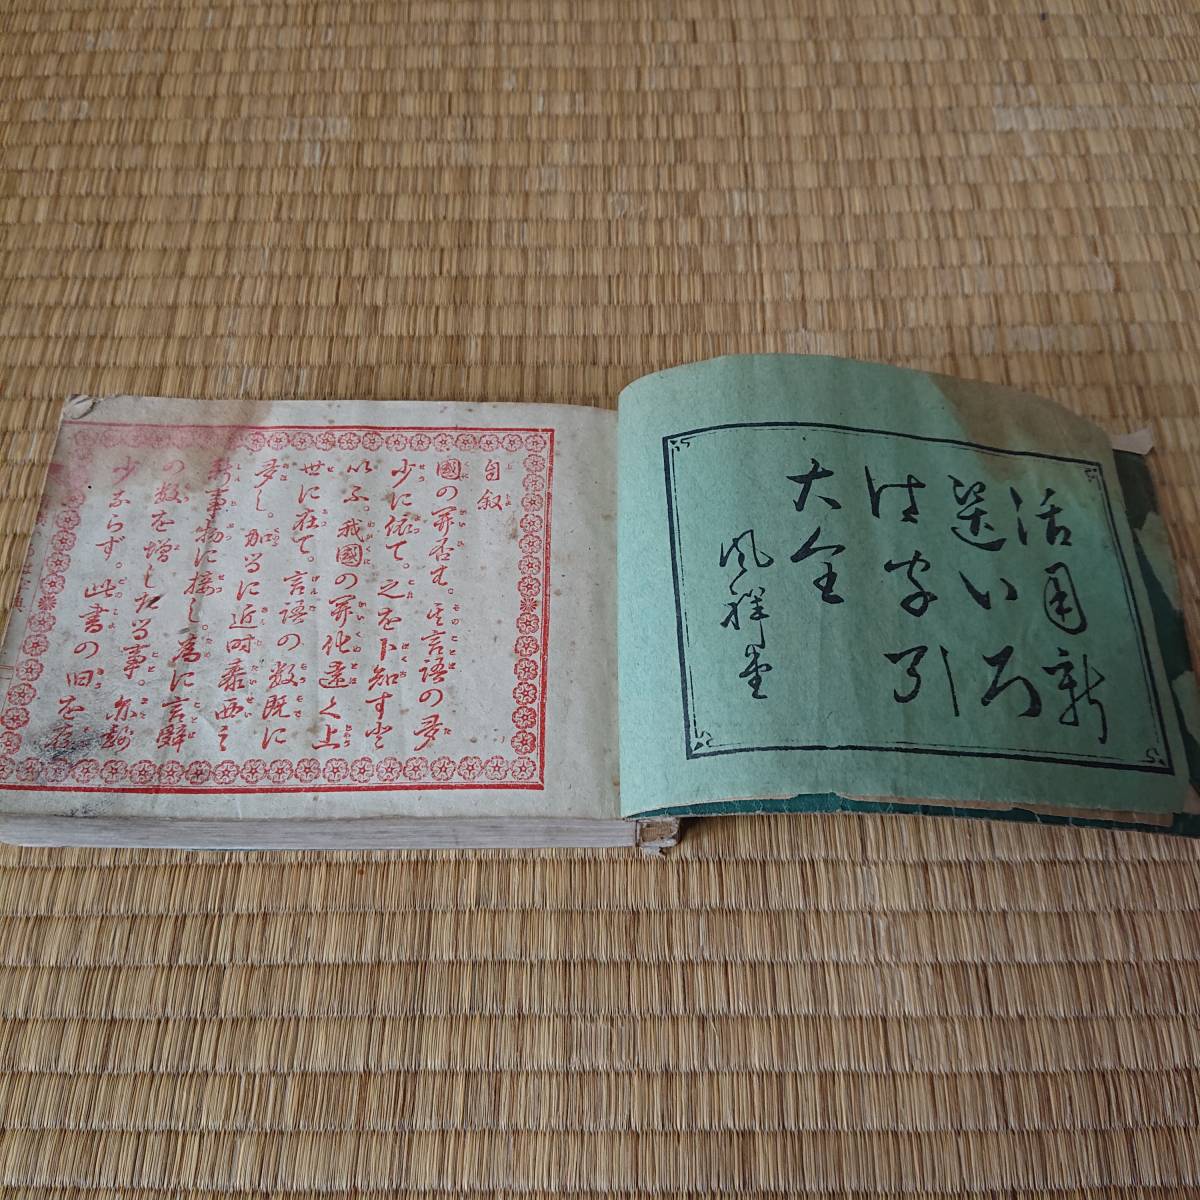 活用新
選いろ
は字引
大全
風祥堂
自叙
國の開否は。其言語の多
少に依て。之を卜知す
いふ。我國の開化遠く上
世に在て。言語の数既に
多し。加るに近時泰西
新事物に接し。為に言辞
の数を増した事。亦
少ならず。此書の旧を